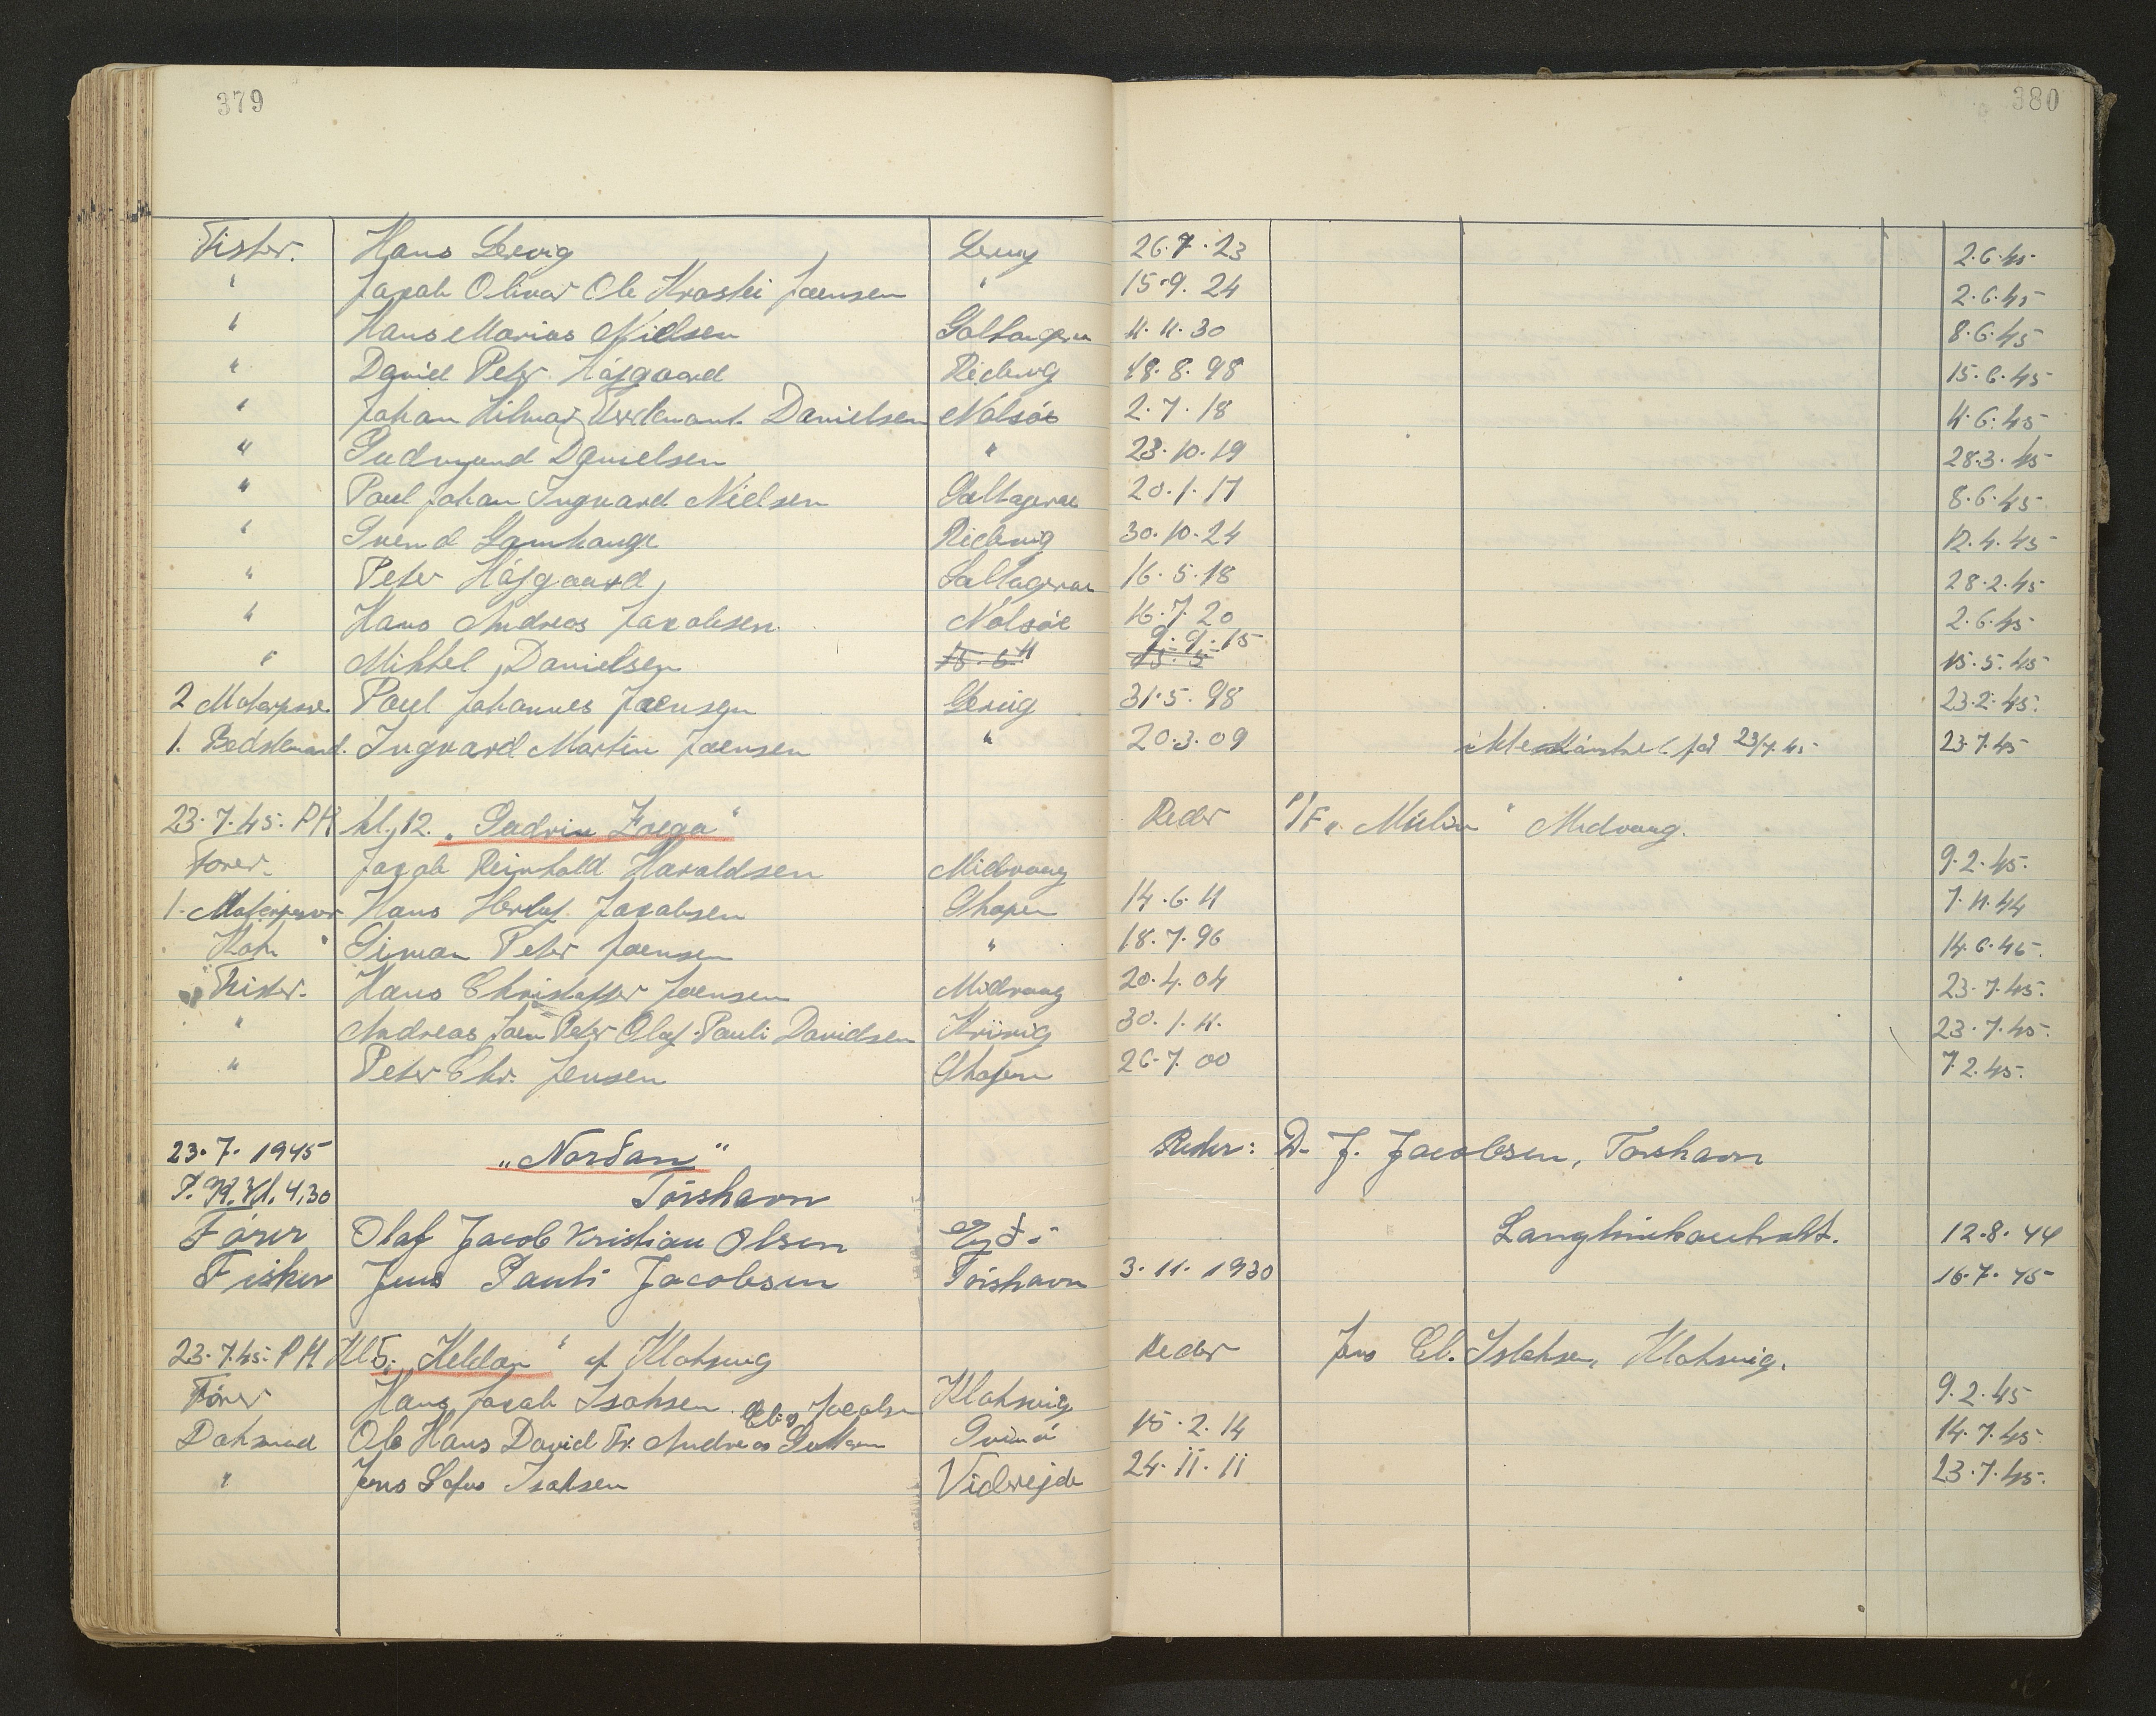 379
380
Fisker. Hans Lervig Lervig 26.7.23 2.6.45
" Jacob Olivar Ole Joensen " 15.9.24 2.6.45
" Hans Marius Nielsen Saltangeren 11.11.30 8.6.45
" Daniel Peter Højgaard Ridevig 18.8.98 15.6.45
" Johan Hilmar Danielsen Nolsöe 2.7.18 11.6.45
" Gudmund Danielsen " 23.10.19 28.3.45
" Poul Johan Ingvard Nielsen Saltageren 20.1.17 8.6.45
" Svend Lamhauge Ridevig 30.10.24 12.4.45
" Peter Højgaard Saltageren 16.5.18 28.2.45
" Hans Andreas Jacobsen Nolsöe 16.7.20 2.6.45
" Mikkel Danielsen " 9.9.15 15.5.45
2 Motorpasser Poul Johannes Joensen Lervig 31.5.98 23.2.45.
1. Bedstemand. Ingvard Martin Joensen " 20.3.09 23/7.45 23.7.45
23.7.45. PM kl. 12. „Gudrin Zoega" Reder P/F „Mulin" Midvaag.
Fører Jacob Reinhold Haraldsen Midvaag 9.2.45.
1. Motorpasser Hans Herluf Jacobsen Thavn 14.6.11 7.11.44
Kok " Simon Peter Joensen " 18.7.96 14.6.45.
Fisker. Hans Christoffer Joensen Midvaag 20.4.04 23.7.45.
" Andreas Joen Peter Olaf Pauli Davidsen 30.1.11. 23.7.45.
" Peter Chr. Jensen Thavn 26.7.00 7.2.45.
23.7.1945 „Nordan" Reder: D. J. Jacobsen, Torshavn
P.M. kl. 4,30 Tórshavn
Fører Olaf Jacob Kristian Olsen 12.8.44
Fisker Jens Pauli Jacobsen Tórshavn 3.11.1930 16.7.45
23.7.45. PM Kl 5. „Keldan" af Klaksvig Reder Jens Cl. Isaksen, Klaksvig.
Fører Hans Jacob Isaksen Klaksvig 9.2.45
Ole Hans David Fr. Andreas Svinø 15.2.14 14.7.45
" Jens Sofus Isaksen Viderejde 24.11.11 23.7.45.